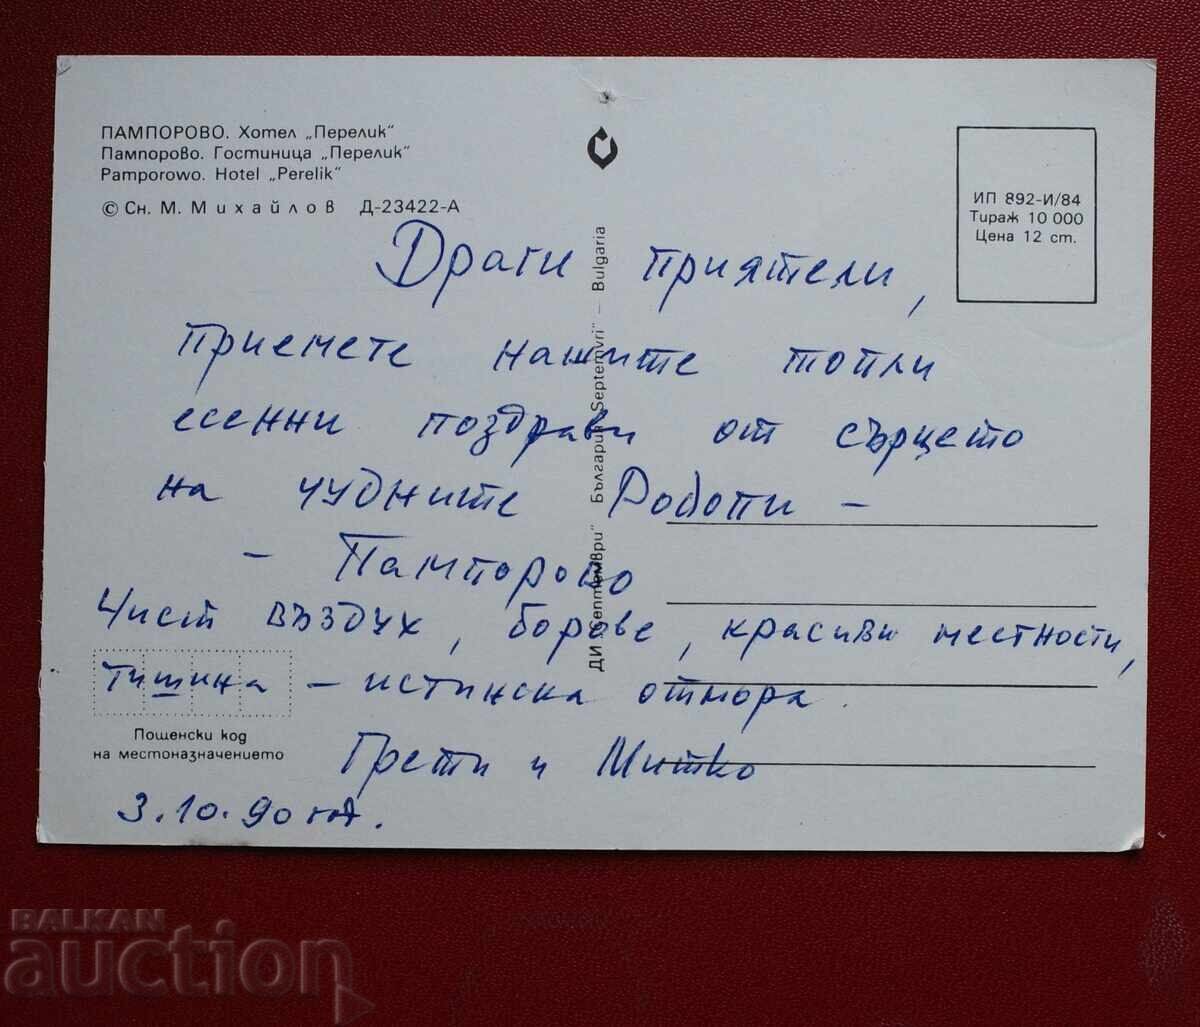 ПАМПОРОВО. Хотел „Перелик“
Пампорово. Гостиница „Перелик“
Pamporowo. Hotel „Perelik“
© Сн. М. Михайлов Д-23422-А
ИП 892-И/84
Тираж 10 000
Цена 12 ст.
ДИ „Септември“ България „Septemvri“ — Bulgaria
Драги приятели,
приемете нашите топли
есенни поздрави от сърцето
на чудните Родопи –
– Пампорово
Чист въздух, борове, красиви местности,
тишина – истинска отмора.
Грети и Митко
3.10.90 год.
Пощенски код
на местоназначението
BALKAN
auction